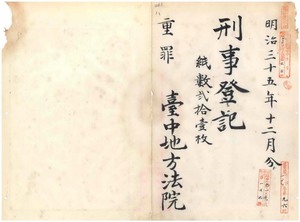 明治三十五年十二月分
刑事登記
紙數貳拾壹枚
重罪
臺中地方法院